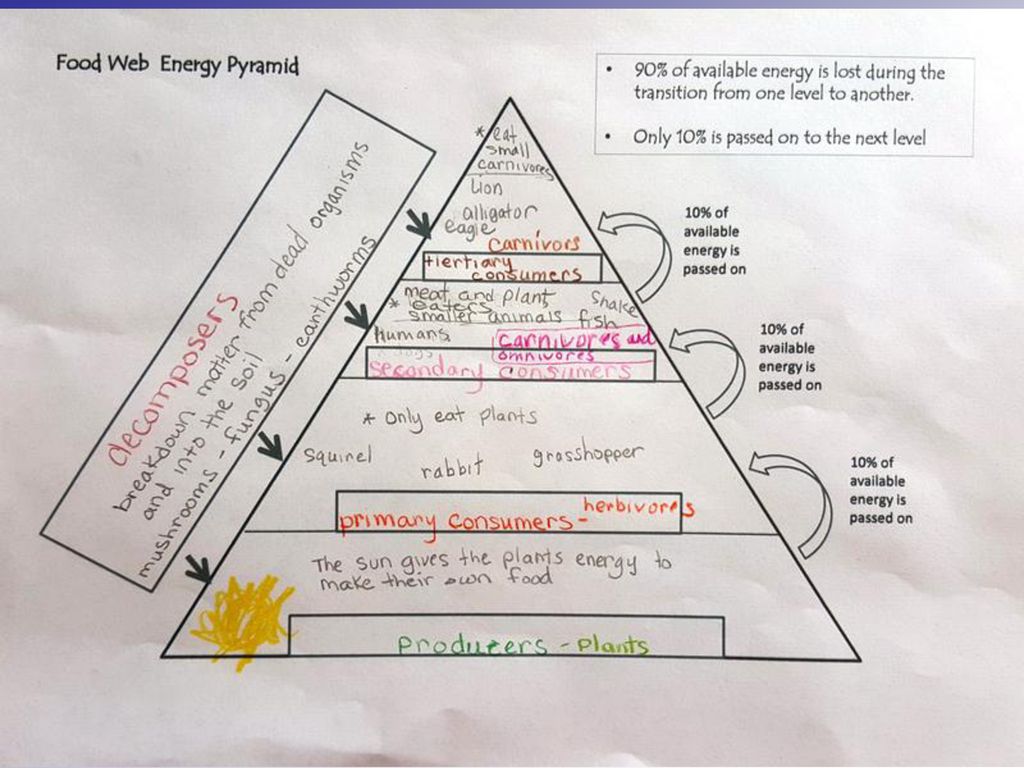 Food Web Energy Pyramid
• 90% of available energy is lost during the
transition from one level to another.
• Only 10% is passed on to the next level
decomposers
breakdown matter from dead organisms
and into the soil
mushrooms - fungus - earthworms
* eat
small
carnivores
Lion
alligator
eagle
carnivors
tiertiary
consumers
10% of
available
energy is
passed on
meat and plant
* eaters
smaller animals
snake
fish
Humans
carnivores and
omnivores
secondary consumers
10% of
available
energy is
passed on
* only eat plants
squirrel
rabbit
grasshopper
primary consumers - herbivores
10% of
available
energy is
passed on
The sun gives the plants energy to
make their own food
Producers - Plants